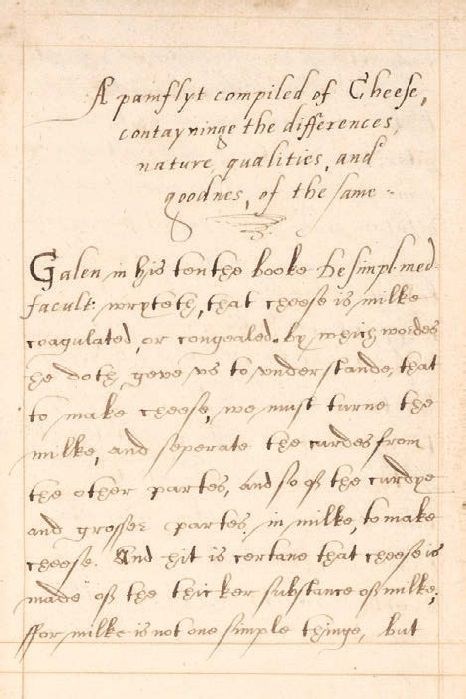 A pamflyt compiled of Cheese,
contayninge the differences,
nature, qualities, and
goodnes, of the same
Galen in his tenthe booke De simpl: med:
facult: wryteth, that cheese is milke
coagulated, or congealed. by which wordes
he doth geve us to understande, that
to make cheese, we must turne the
milke, and seperate the curdes from
the other partes, and so of the curdye
and grosser partes in milke, to make
cheese. And hit is certane that cheese is
made of the thicker substance of milke;
ffor milke is not one simple thinge, but